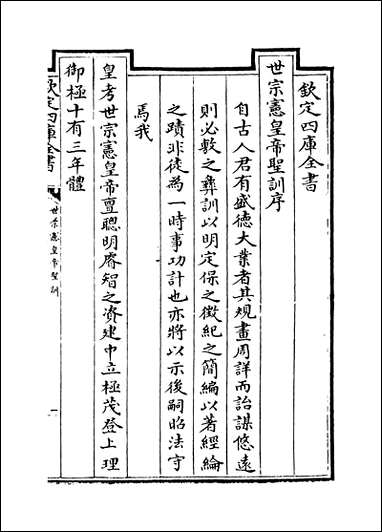 欽定四庫全書
世宗憲皇帝聖訓序
自古人君有盛德大業者其規畫周詳而詒謀悠遠
則必敷之彝訓以明定保之徵紀之簡編以著經綸
之蹟非徒為一時事功計也亦將以示後嗣昭法守
焉我
皇考世宗憲皇帝亶聰明睿智之資建中立極茂登上理
御極十有三年體
欽定四庫全書
世宗憲皇帝聖訓
一